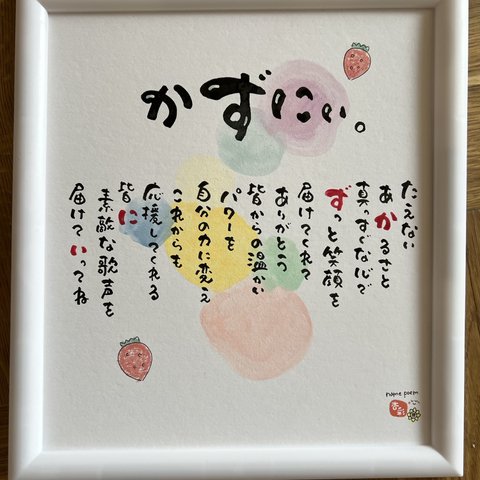 かずにぃ。
たえない
あかるさと
真っすぐな心で
ずっと笑顔を
届けてくれて
ありがとう
皆からの温かい
パワーを
自分の力に変え
これからも
応援してくれる
皆に
素敵な歌声を
届けていってね
name poem